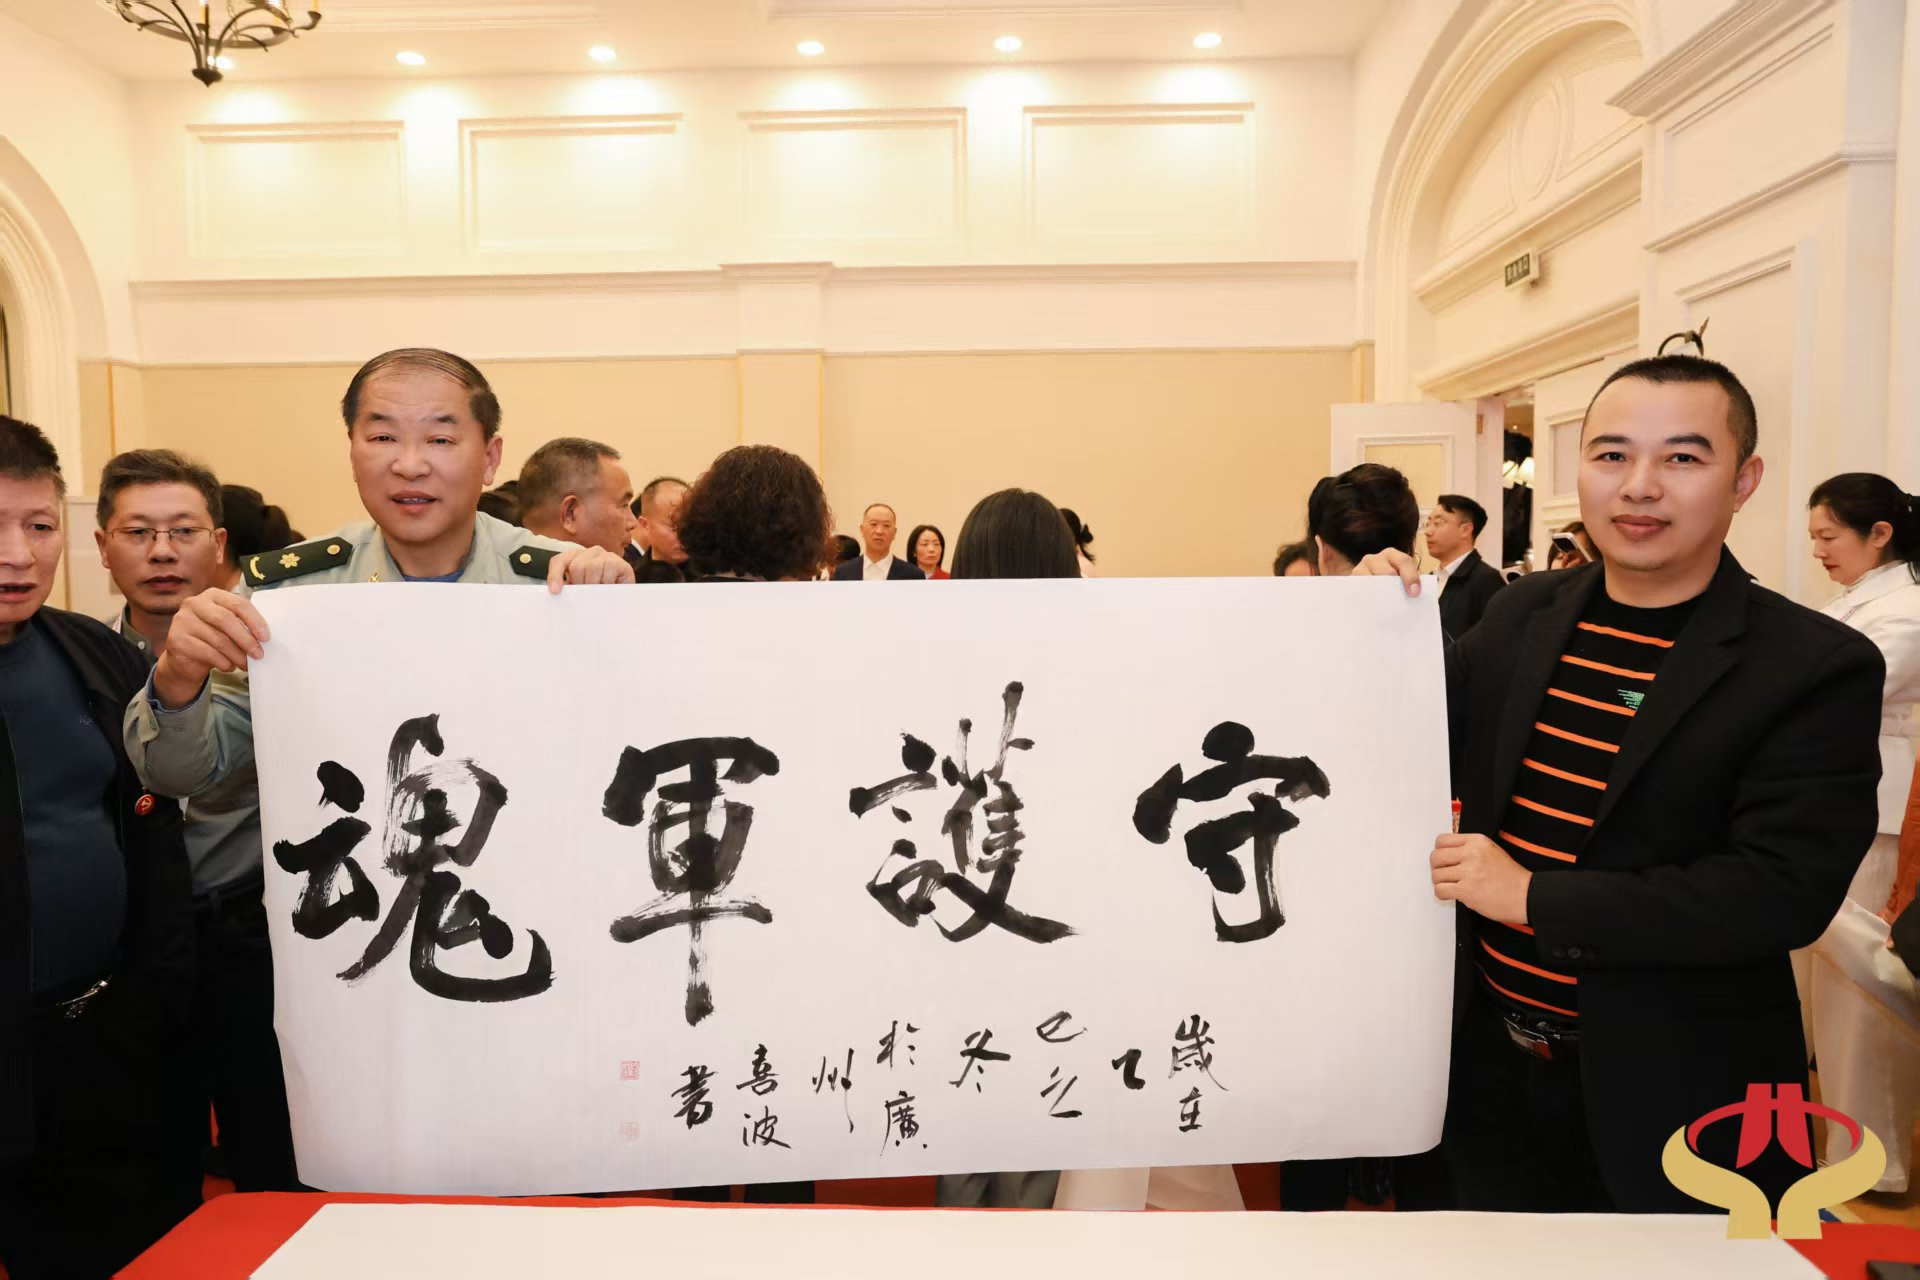 守護軍魂
歲在
乙
巳之
冬
於廣
州
喜波
書